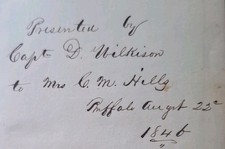 Presented by
Capt D. Wilkison
to Mrs C. M. Hills
Buffalo Augst 22d
1846